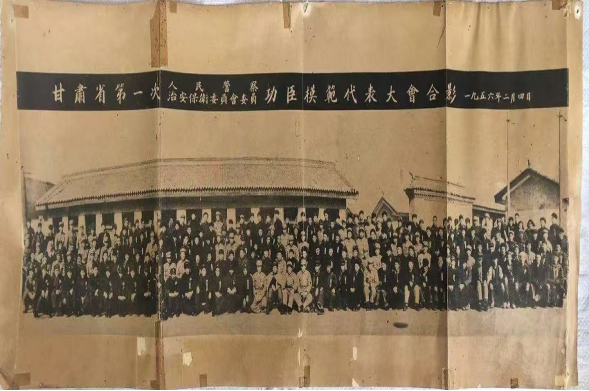 甘肅省第一次人民警察治安保衛委員會委員功臣模範代表大會合影 一九五六年二月四日